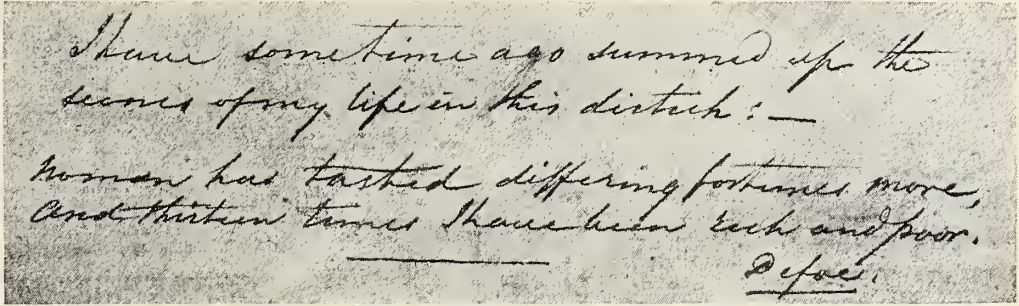 I have some time ago summed up the
scenes of my life in this distich: —
No man has tasted differing fortunes more,
And thirteen times I have been rich and poor.
Defoe.